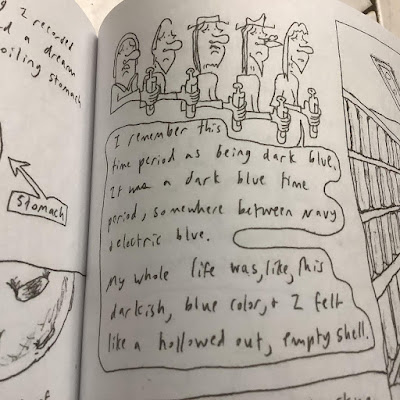 g I recorded
d a dream
oiling stomach
stomach
I remember this
time period as being dark blue.
It was a dark blue time
period, somewhere between navy
& electric blue.
My whole life was, like, this
darkish, blue color, & I felt
like a hollowed out, empty shell.
of